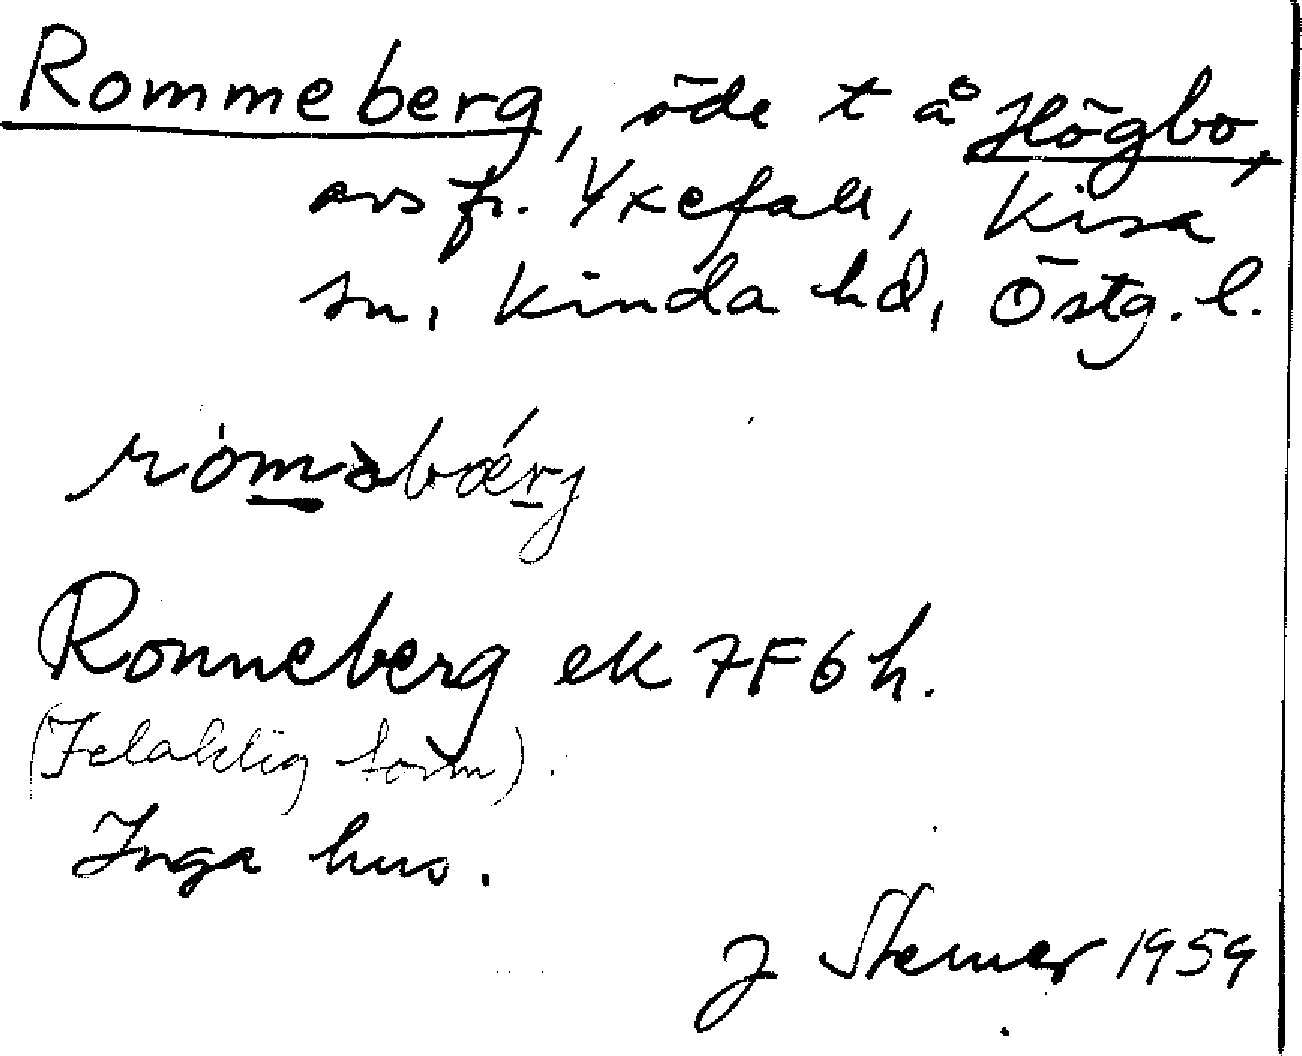 Rommeberg, öde t å Högbo,
avs fr. Yxefall, Kisa
sn, Kinda hd, Östg. l.
ròməbǽrj
Ronneberg ek 7F6h.
(Felaktig form).
Inga hus.
J Sterner 1959